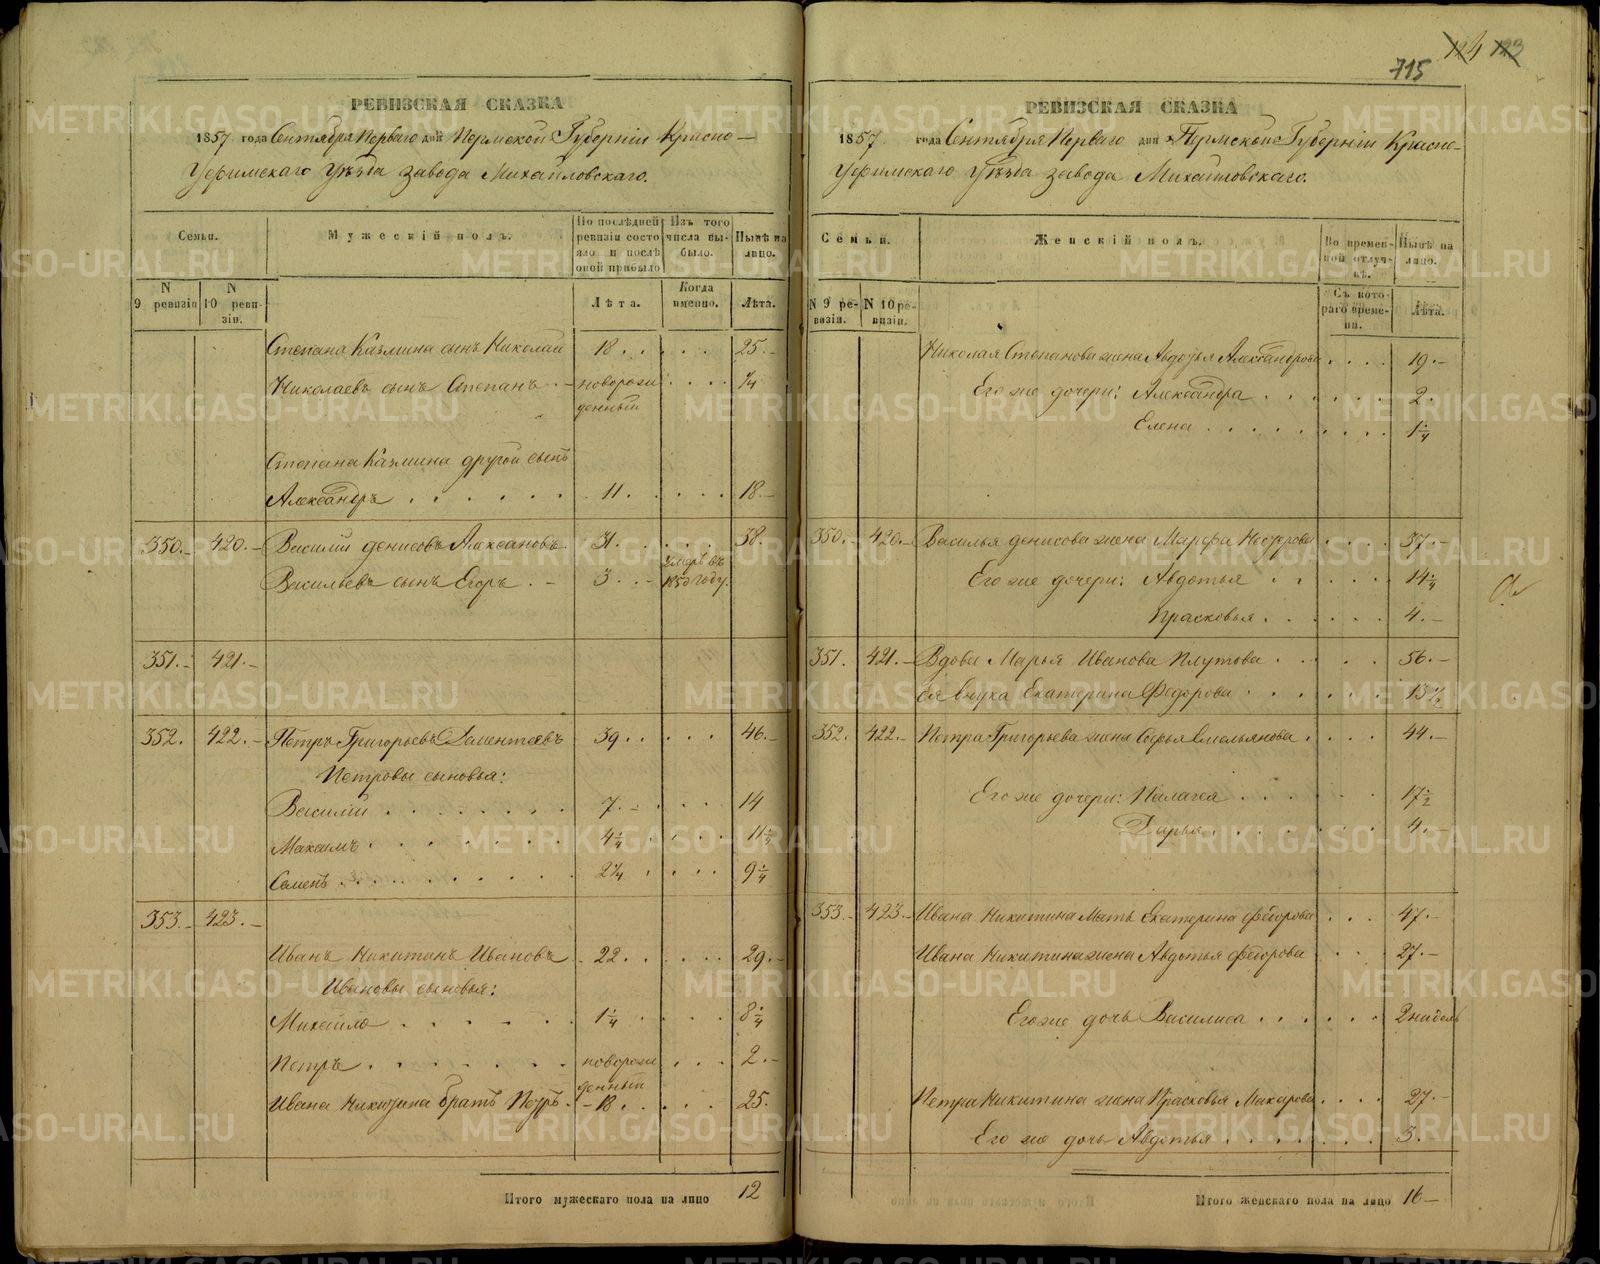 124 123
715
РЕВИЗСКАЯ СКАЗКА
1857 года Сентября Перваго дня Пермской Губерніи Красно-
Уфимскаго Уѣзда завода Михайловскаго.
Семьи.
Мужескій полъ.
По послѣдней ревизіи состояло и послѣ оной прибыло
Изъ того числа выбыло.
Нынѣ на лицо.
N 9 ревизіи
N 10 ревизіи.
Лѣта.
Когда именно.
Лѣта.
Степана Казмина сынъ Николай 18 25.-
Николаевъ сынъ Степанъ новорожденный 1/4
Степана Казмина другой сынъ
Александръ 11. 18.-
350.- 420.- Василій Денисовъ 31. 38.-
Васильевъ сынъ Егоръ 3 умеръ въ 1850 году.
351.- 421.-
352. 422.- Петръ Григорьевъ Дементьевъ 39 46.-
Петровы сыновья:
Василій 7.- 14
Максимъ 4 1/4 11 1/4
Семенъ 2 1/4 9 1/4
353.- 423.-
Иванъ Никитинъ Ивановъ 22. 29.-
Ивановы сыновья:
Михайло 1 1/4 8 1/4
Петръ новорожденный 2.-
Ивана Никитина братъ Петръ 18. 25.
Итого мужескаго пола на лицо 12
РЕВИЗСКАЯ СКАЗКА
1857 года Сентября Перваго дня Пермской Губерніи Красно-
Уфимскаго Уѣзда завода Михайловскаго.
Семьи.
Женскій полъ.
Во временной отлучкѣ.
Нынѣ на лицо.
N 9 ревизіи.
N 10 ревизіи.
Съ котораго времени.
Лѣта.
Николая Степанова жена Авдотья Александрова 19.-
Его же дочери: Александра 2.
Елена 1 1/4
350.- 420.- Василья Денисова жена Марфа 37.-
Его же дочери: Авдотья 14 1/4
Прасковья 4.-
351. 421.- Вдова Марья Иванова Плутова 56.-
Ея внука Екатерина Федорова 13 1/2
352. 422.- Петра Григорьева жена Софья Емельянова 44.-
Его же дочери: Палагея 17 1/2
Дарья 4.-
353.- 423.- Ивана Никитина мать Екатерина Федорова 47.-
Ивана Никитина жена Авдотья Федорова 27.-
Его же дочь Василиса 2 недель
Петра Никитина жена Прасковья Макарова 27.-
Его же дочь Авдотья 3.-
Итого женскаго пола на лицо 16-
METRIKI.GASO-URAL.RU